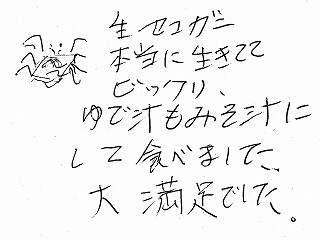 生セコガニ
本当に生きてて
ビックリ、
ゆで汁もみそ汁に
して食べました、
大満足でした。